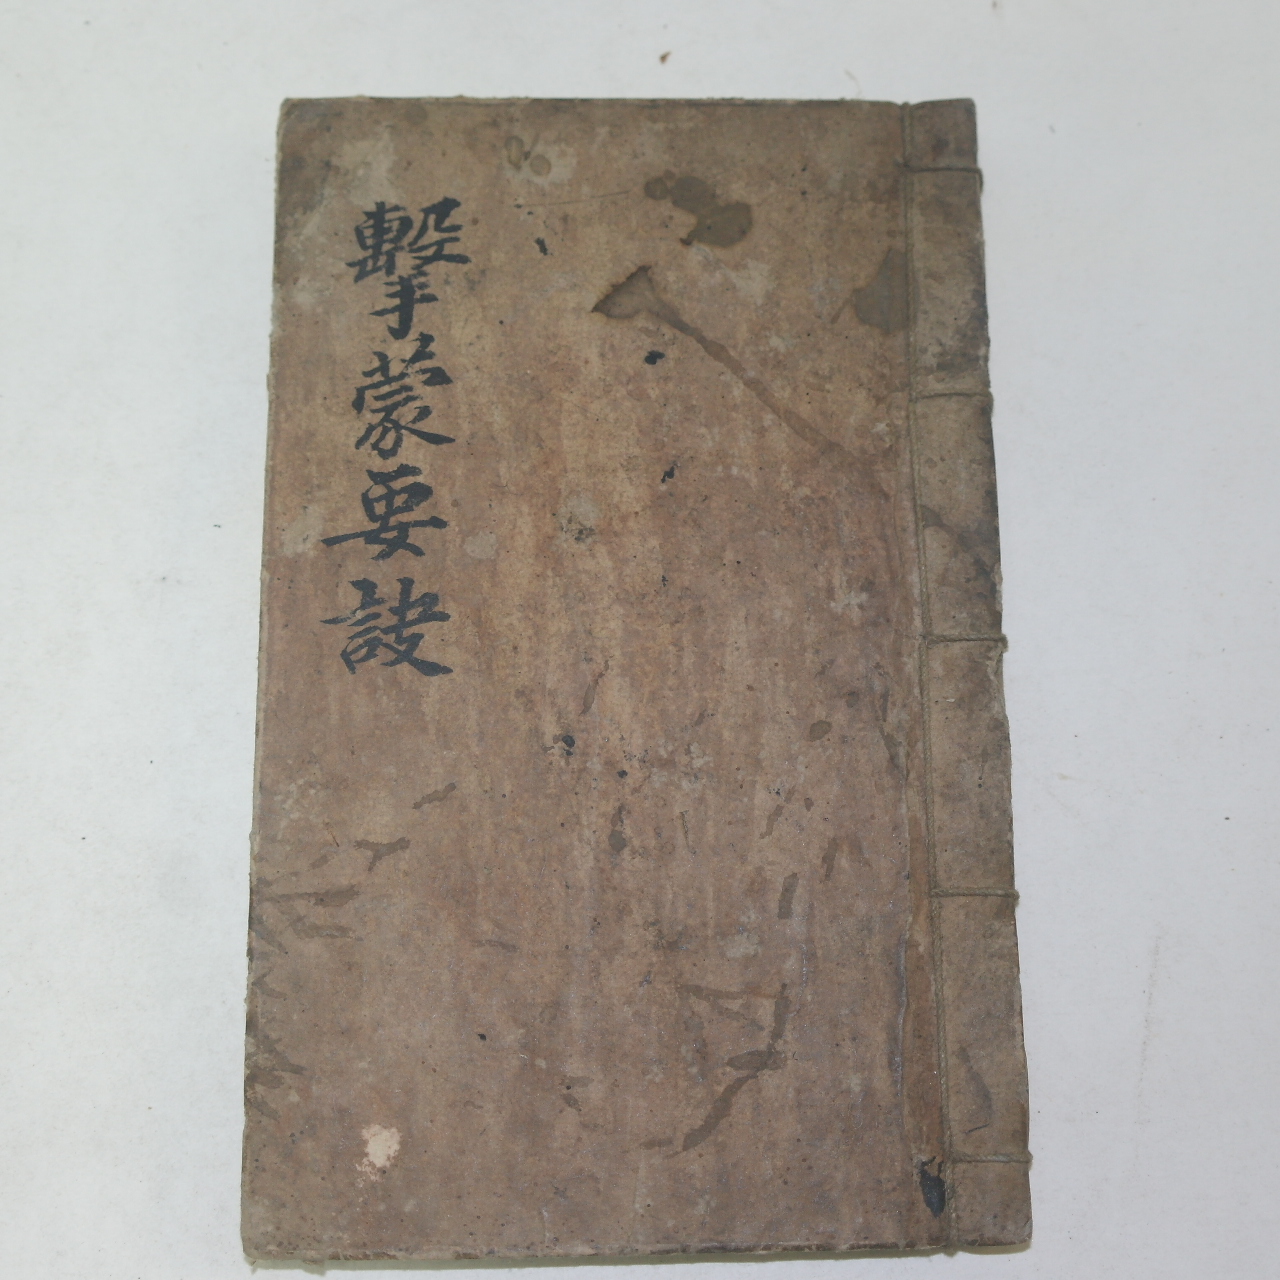 擊蒙要訣